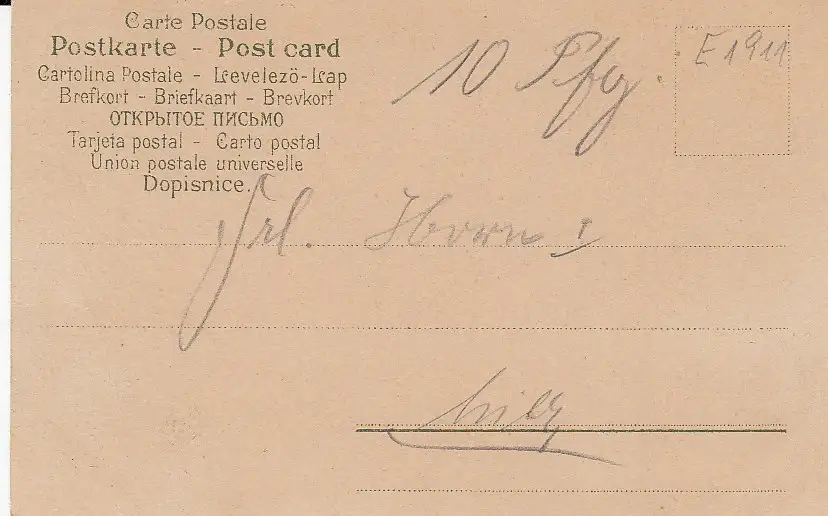 Carte Postale
Postkarte - Post card
Cartolina Postale - Levelezö-Lap
Brefkort - Briefkaart - Brevkort
ОТКРЫТОЕ ПИСЬМО
Tarjeta postal - Carto postal
Union postale universelle
Dopisnice.
10 Pfg.
E 1911
Frl. Horn